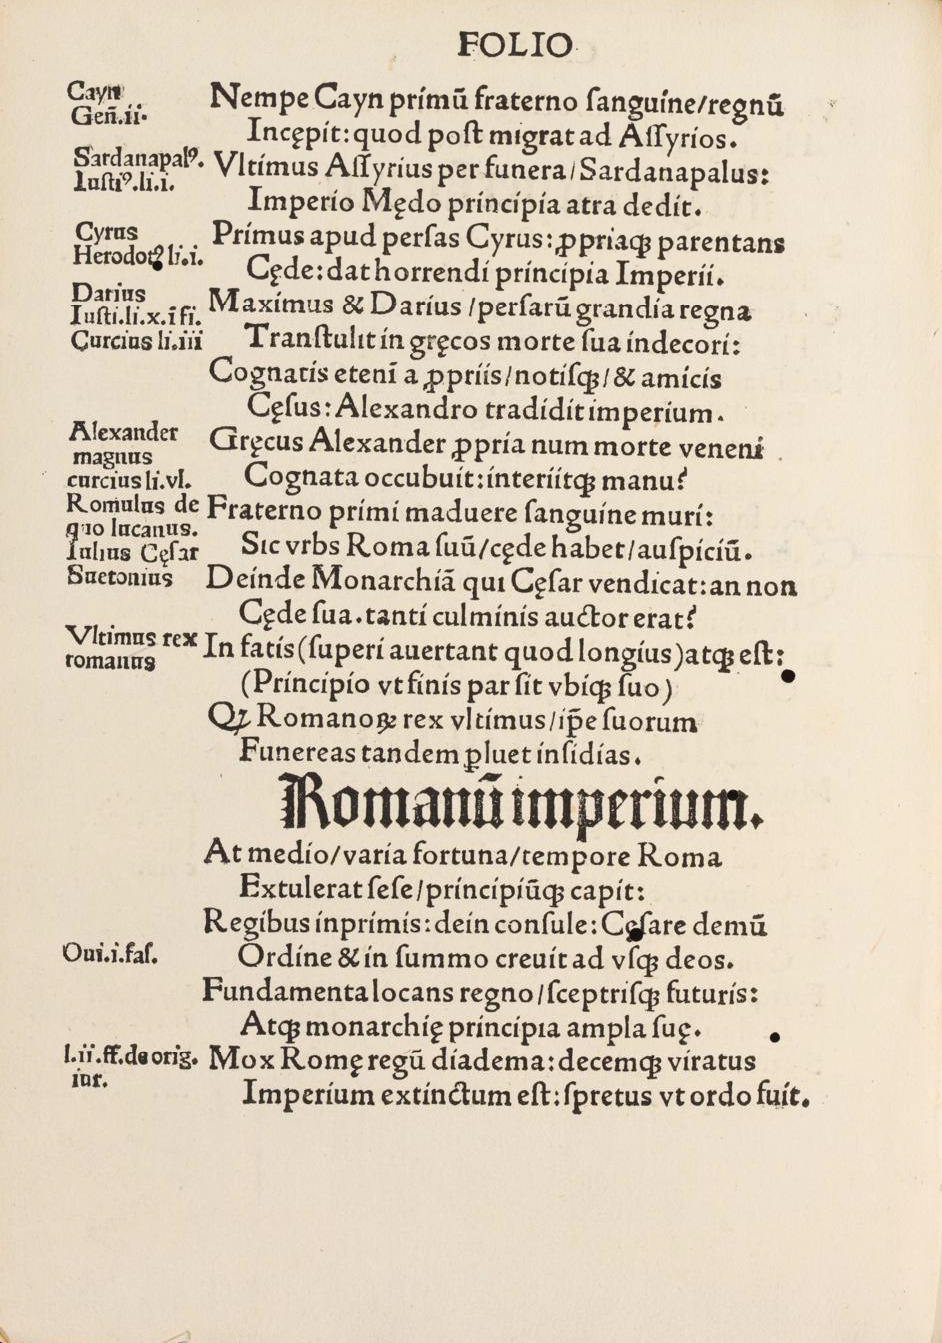 FOLIO
Cayn
Geñ.ii.
Nempe Cayn primū fraterno ſanguine/regnū
Incępit: quod poſt migrat ad Aſſyrios.
Sardanapalꝰ.
Iuſtiꝰ.li.i.
Vltimus Aſſyrius per funera/Sardanapalus:
Imperio Mędo principia atra dedit.
Cyrus
Herodotꝰ li.i.
Primus apud perſas Cyrus: ꝓpriaqꝫ parentans
Cęde: dat horrendi principia Imperii.
Darius
Iuſti.li.x.ī fi.
Curcius li.iii
Maximus & Darius /perſarū grandia regna
Tranſtulit in gręcos morte ſua indecori:
Cognatis etenī a ꝓpriis/notiſqꝫ/& amicis
Cęſus: Alexandro tradidit imperium.
Alexander
magnus
curcius li.vl.
Gręcus Alexander ꝓpria num morte veneni
Cognata occubuit: interiitqꝫ manu?
Romulus de
quo lucanus.
Fraterno primi maduere ſanguine muri:
Sic vrbs Roma ſuū/cęde habet/auſpiciū.
Iulius Cęſar
Suetonius
Deinde Monarchiā qui Cęſar vendicat: an non
Cęde ſua. tanti culminis auctor erat?
Vltimus rex
romanus
In fatis(ſuperi auertant quod longius)atqꝫ eſt:
(Principio vt finis par ſit vbiqꝫ ſuo)
Qꝫ Romanoꝝ rex vltimus/ip̄e ſuorum
Funereas tandem ꝑluet inſidias.
Romanū imperium.
At medio/varia fortuna/tempore Roma
Extulerat ſeſe/principiūqꝫ capit:
Regibus inprimis: dein conſule: Cęſare demū
Oui.i.faſ.
Ordine & in ſummo creuit ad vſqꝫ deos.
Fundamenta locans regno/ſceptriſqꝫ futuris:
Atqꝫ monarchię principia ampla ſuę.
l.ii.ff.de orig.
iur.
Mox Romę regū diadema: decemqꝫ viratus
Imperium extinctum eſt: ſpretus vt ordo fuit.